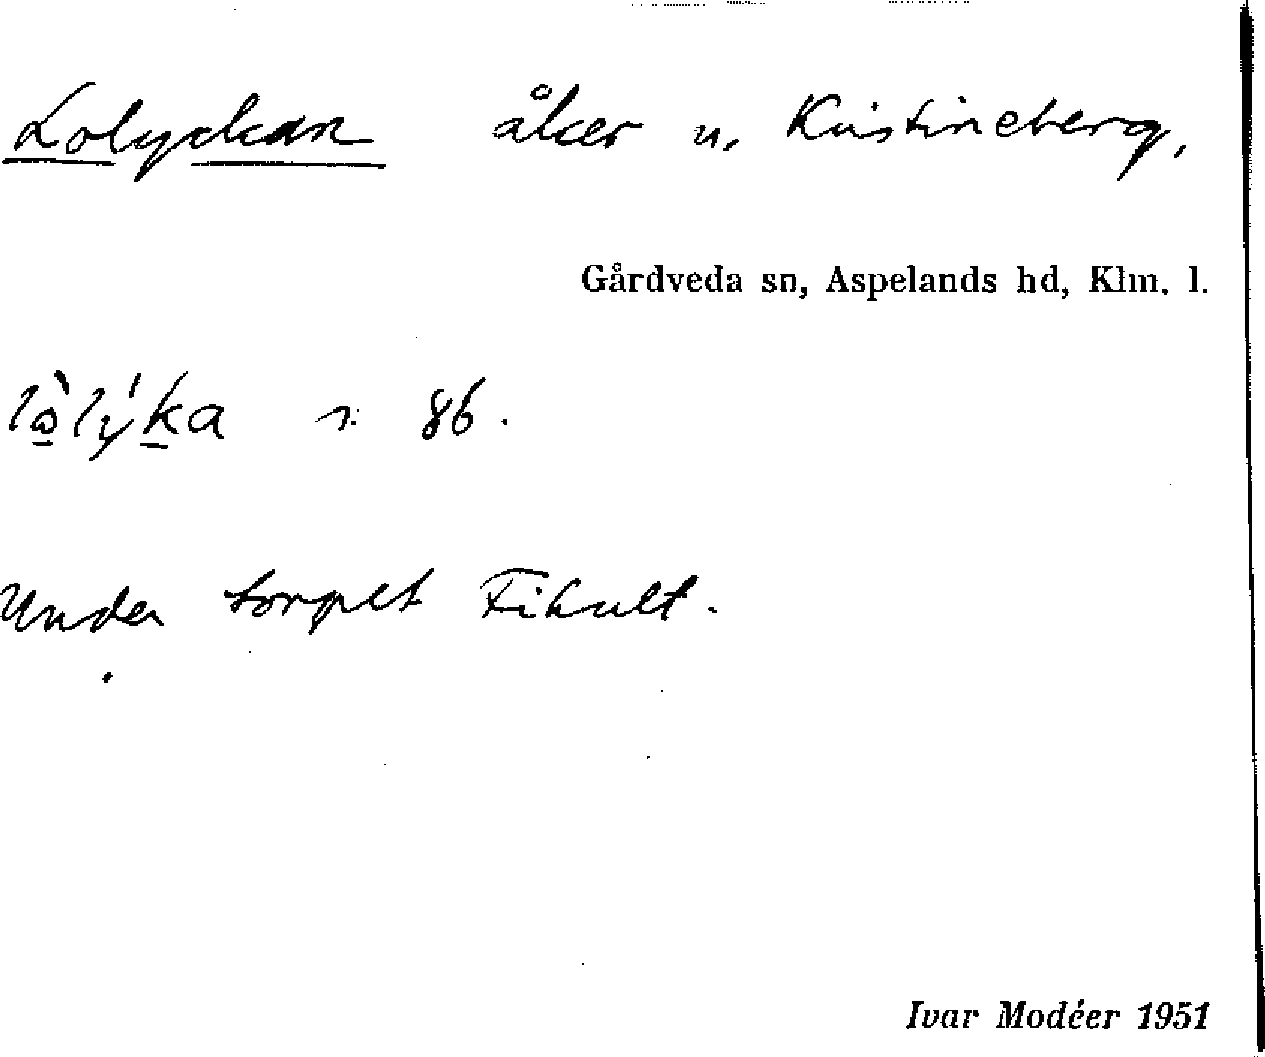 Lolyckan åker u. Kristineberg,
Gårdveda sn, Aspelands hd, Klm. l.
lo̠̊̀lýk̠a s: 86.
Under torpet Fihult.
Ivar Modéer 1951